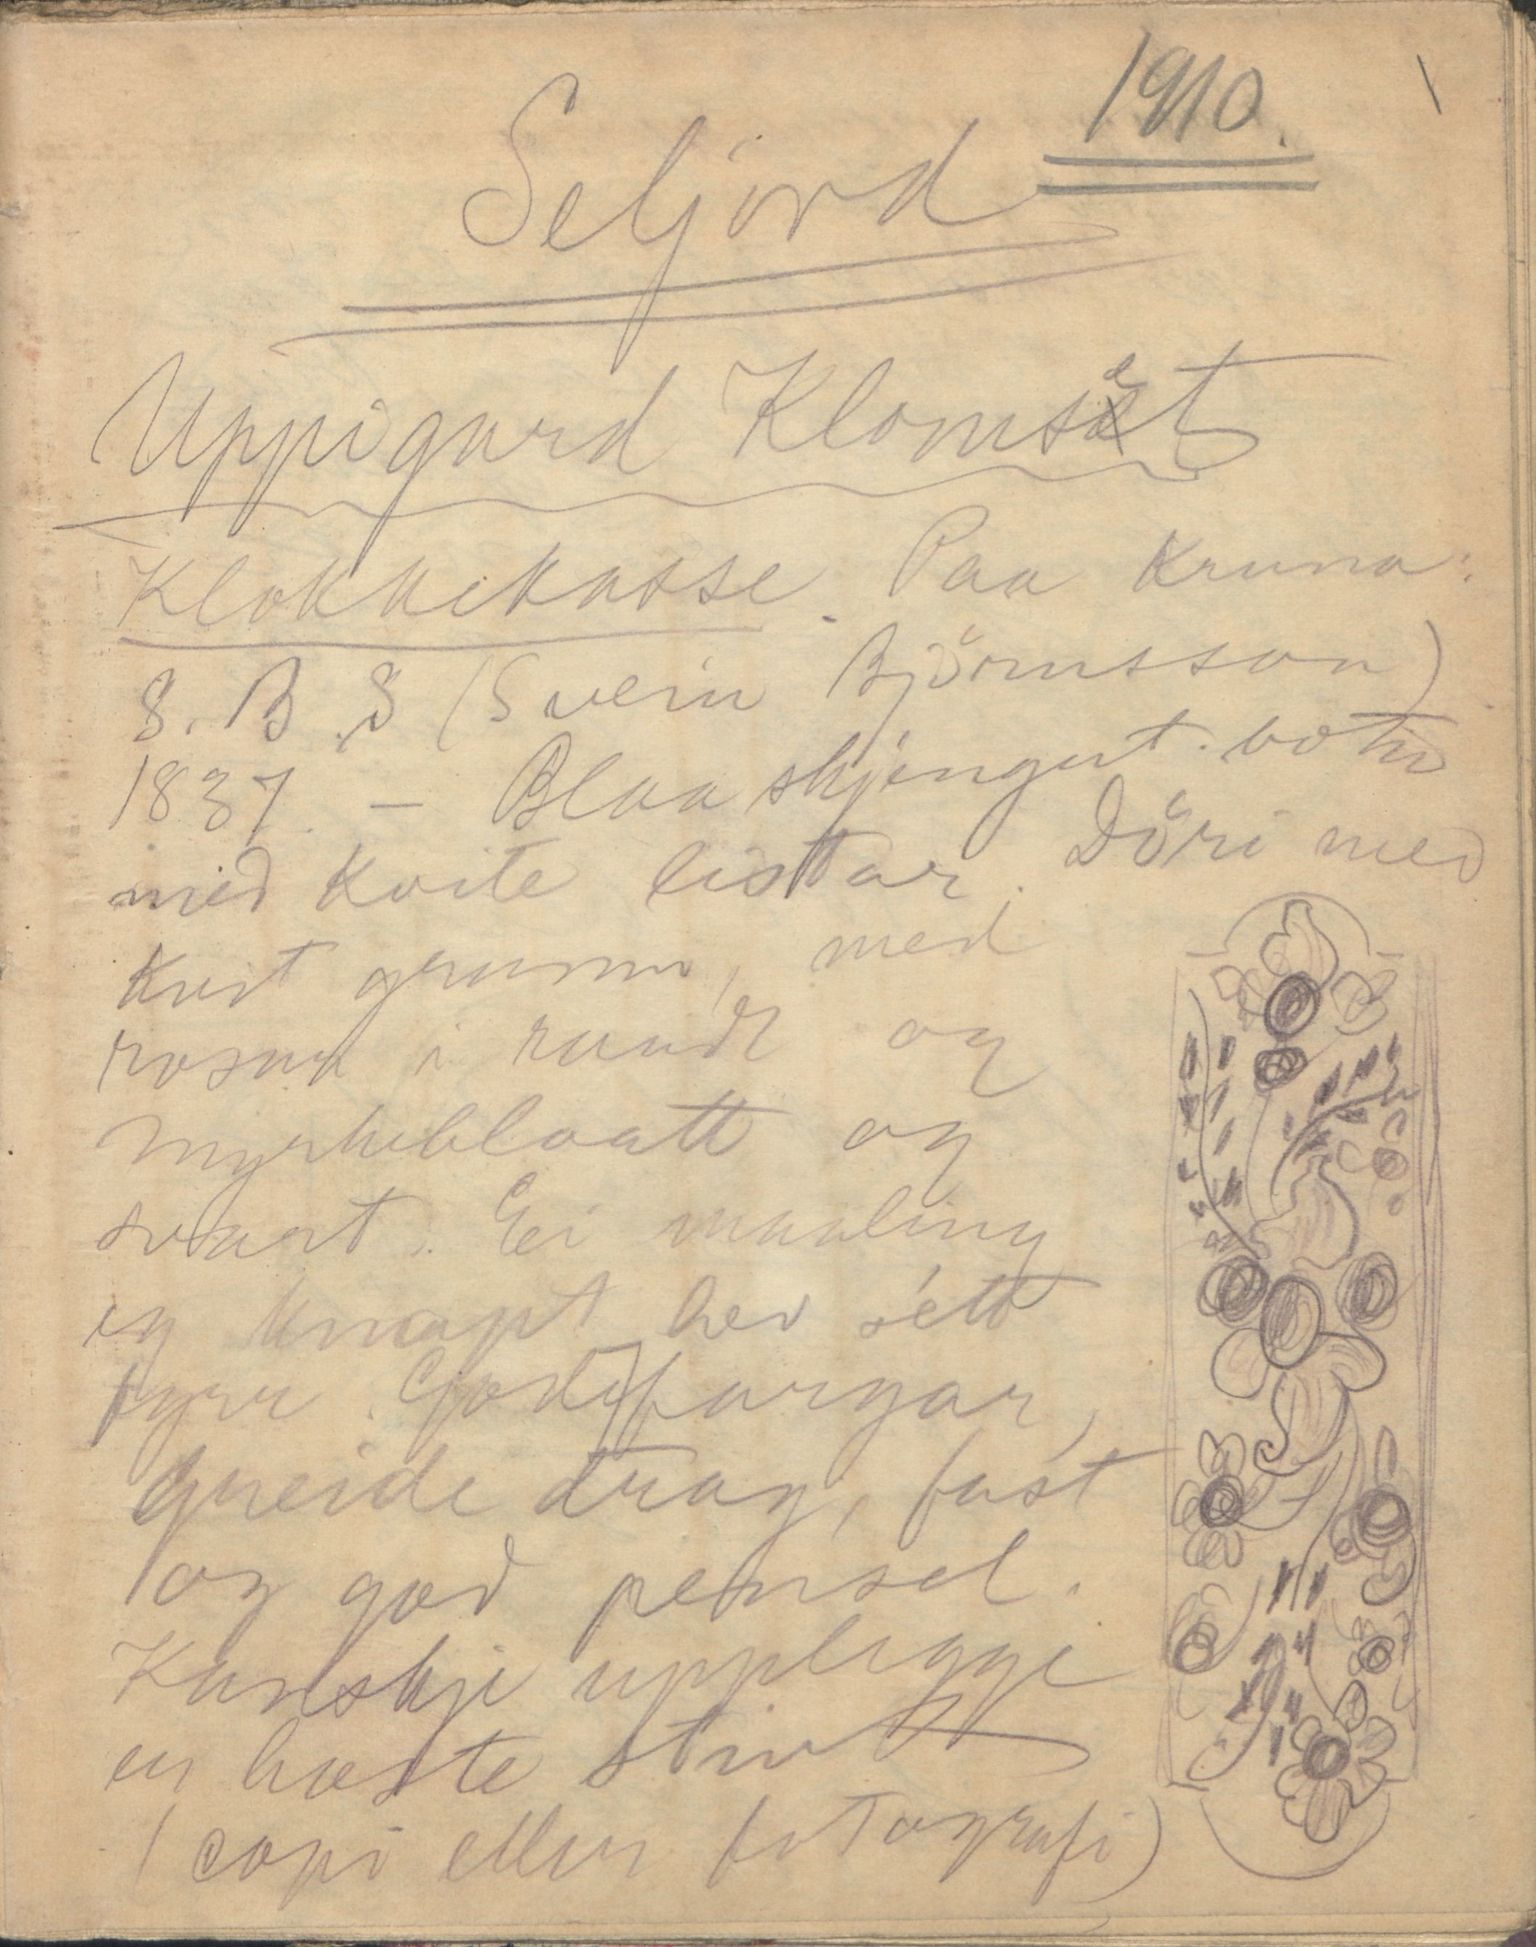 1910.
Seljord
Uppigard Klomset
Klokkekasse. Paa Kruna:
S. B. S (Svein Björnsson)
1837. — Blaa skjengut botn
med kvite listar. Döri med
kvit grunn, med
rosur i raudt og
myrkeblaatt og
svart. Ei maaling
eg knapt hev sétt
fyrr. Gode fargar,
greide drag, fast
og god pensel.
Kanskje upplegge
en høste
(copi eller fotografi)